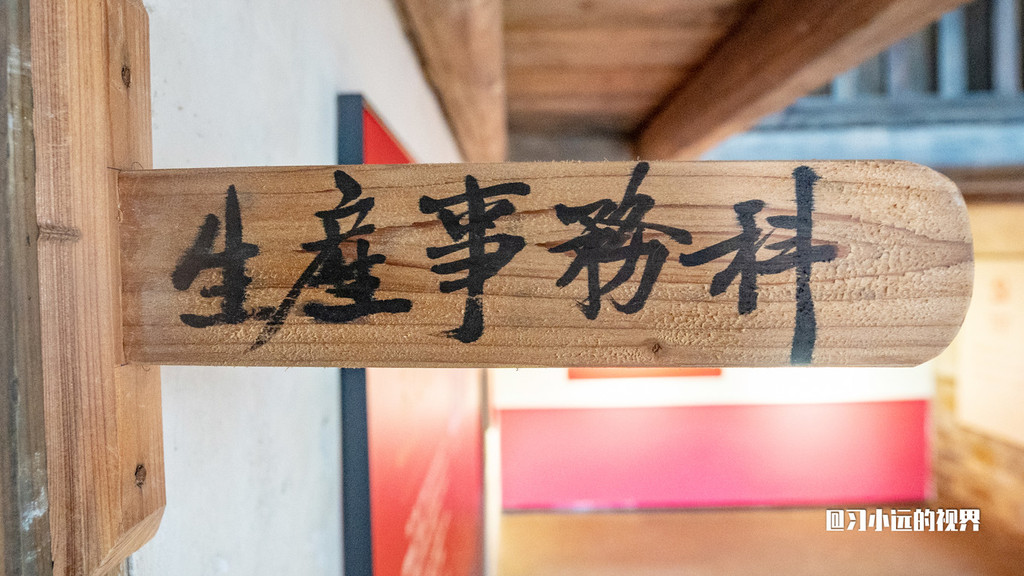 生産事務科
@习小远的视界